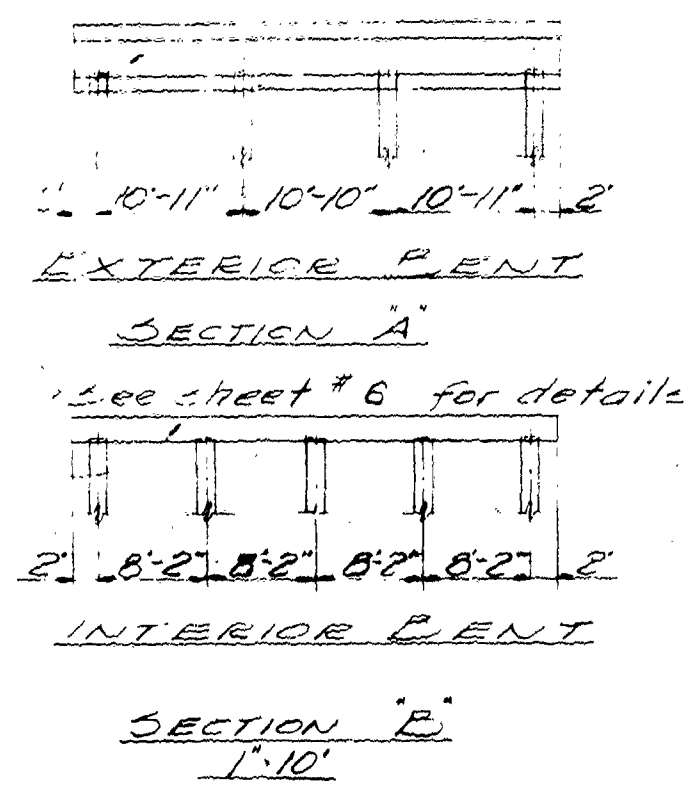 10'-11" 10'-10" 10'-11" 2'
EXTERIOR BENT
SECTION "A"
See sheet #6 for details
2' 8'-2" 8'-2" 8'-2" 8'-2" 2'
INTERIOR BENT
SECTION "B"
1"·10'